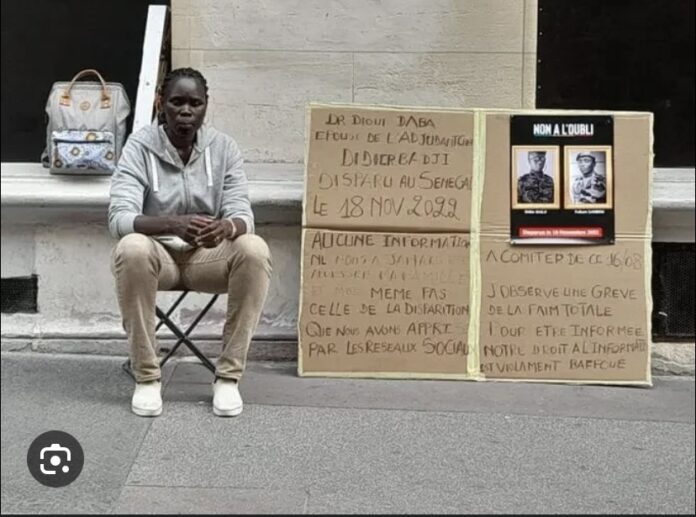 DR DIOUI DABA
EPOUSE DE L'ADJUDANT
DIDIER BADJI
DISPARU AU SENEGA
LE 18 NOV. 2022
AUCUNE INFORMATION
NE NOUS A JAMAIS
MEME PAS
CELLE DE LA DISPARITION
QUE NOUS AVONS APPRIS
PAR LES RESEAUX SOCIAUX
NON A L'OUBLI
Didier BADJI
Fulbert SAMBOU
Disparus le 18 Novembre 2022
A COMPTER DE CE 16/08
J'OBSERVE UNE GREVE
DE LA FAIM TOTALE
POUR ETRE INFORMEE
NOTRE DROIT A L'INFORMATI
EST VIOLAMENT BAFFOUE